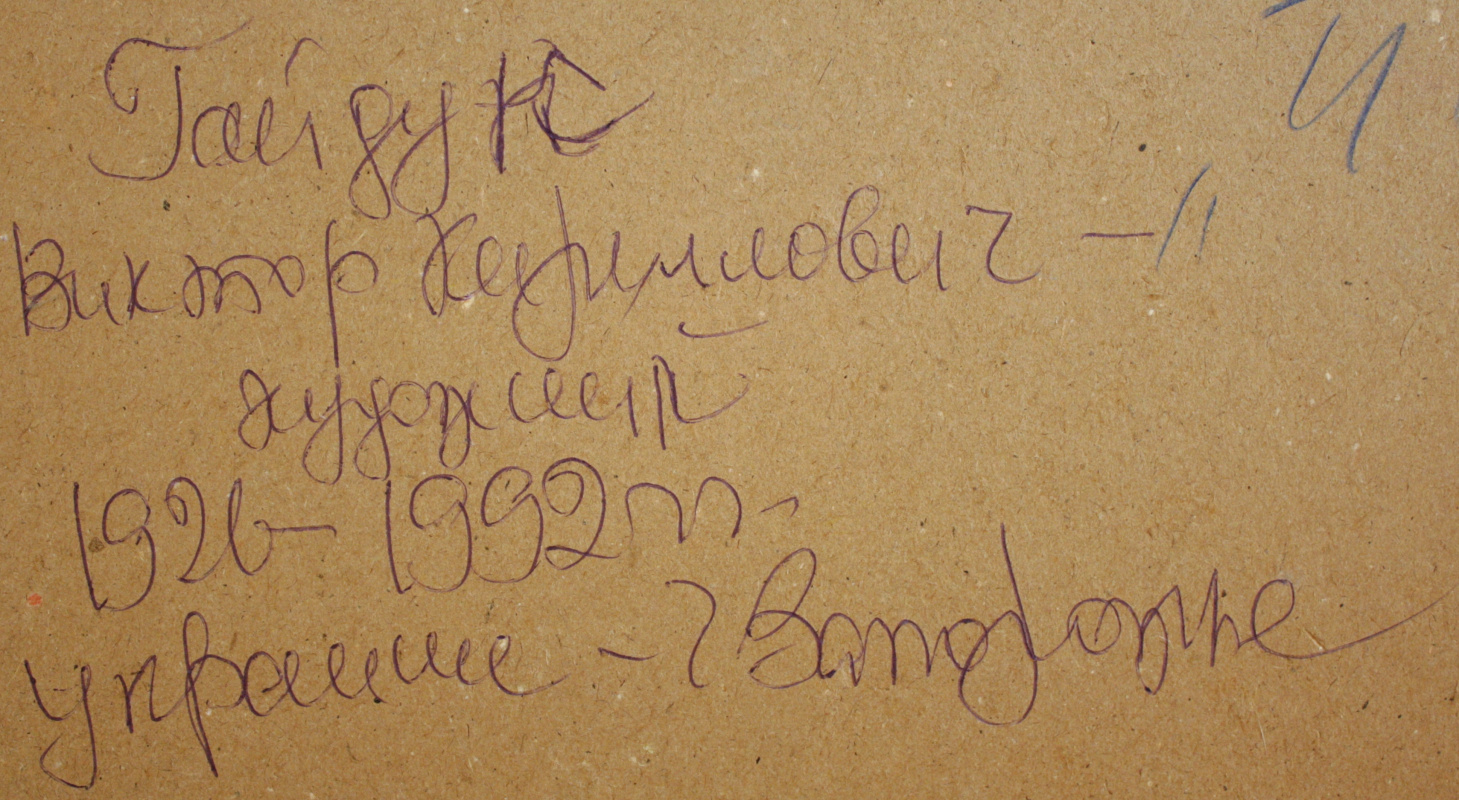 Гайдук
Виктор Кириллович –
художник
1926 – 1992 гг.
Украина – г Запорожье